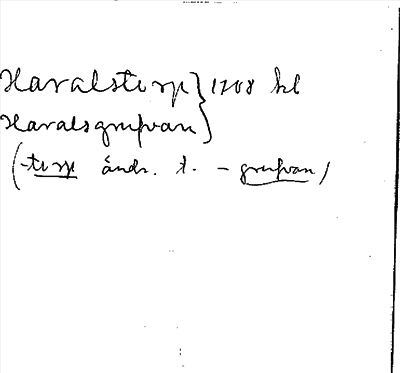 Haralstorp } 1708 kl
Haralsgrufvan }
(-torp ändr. t. - grufvan)